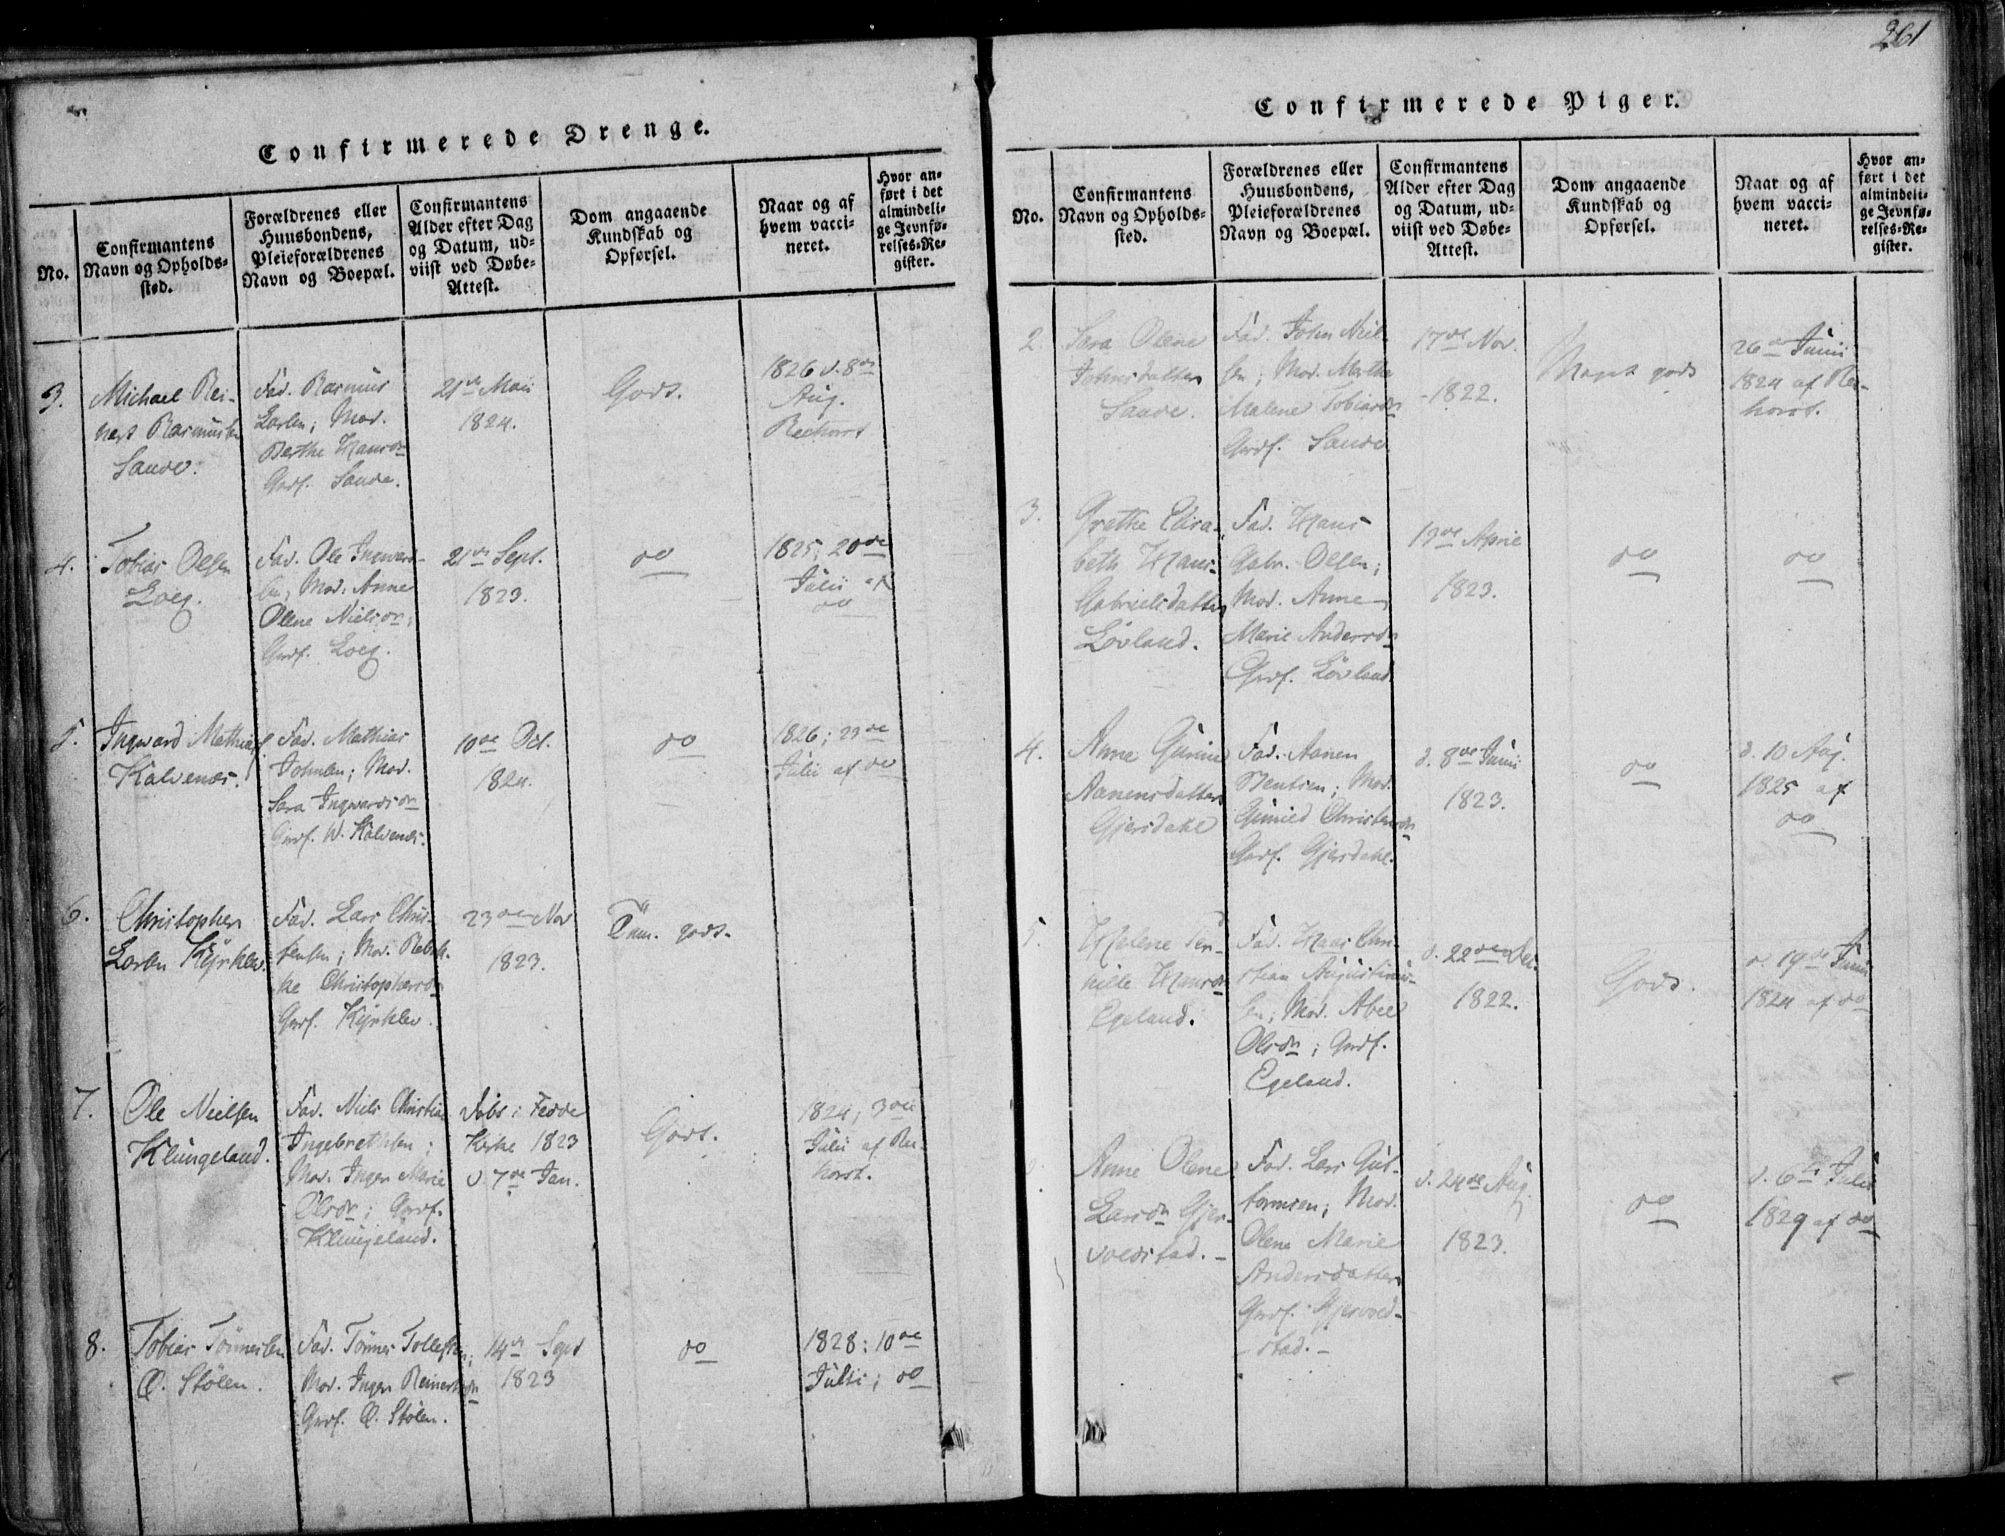 Confirmerede Drenge.
No.
Confirmantens
Navn og Opholds-
sted.
Forældrenes eller
Huusbondens,
Pleieforældrenes
Navn og Boepæl.
Confirmantens
Alder efter Dag
og Datum, ud-
viist ved Døbe-
Attest.
Dom angaaende
Kundskab og
Opførsel.
Naar og af
hvem vacci-
neret.
Hvor an-
ført i det
almindeli-
ge Jevnfø-
relses-Re-
gister.
3.
Michael Rei-
nert Rasmussen
Sande.
Fad. Rasmus
Larsen; Mod.
Berthe Hansdr
Grdf. Sande.
21de Mai
1824.
Godt.
1826 d. 8de
Aug.
Reehorst
4.
Tobias Olsen
Loeg.
Fad. Ole Ingward-
sen; Mod. Anne
Olene Nielsdr;
Grdf. Loeg.
21de Sept.
1823.
do
1825; 20de
Julii af
do
5.
Ingward Mathias
Kalvenes.
Fad. Mathias
Johnsen; Mod.
Sara Ingwardsdr
Grdf. W. Kalvenes.
10de Oct.
1824.
do
1826; 29de
Julii af do
6.
Christopher
Larsen Kyrklev.
Fad. Lars Chris-
tensen; Mod. Rebek-
ke Christophersdr
Grdf. Kyrklev.
23de Nov
1823.
Tem. godt.
7.
Ole Nielsen
Klungeland.
Fad. Niels Christian
Ingebrethsen;
Mod. Inger Marie
Olsdr; Grdf.
Klungeland.
Døbt i Fedde
Kirke 1823
d 7de Jan.
Godt.
1824; 3die
Julii af Ree-
horst.
8.
Tobias Tönnessen
Ø. Stölen.
Fad. Tönnes Tollefsen;
Mod. Inger Reinertsdr
Grdf. Ø. Stölen.
14de Sept
1823
do
1828; 10de
Julii; do
261
Confirmerede Piger.
No.
Confirmantens
Navn og Opholds-
sted.
Forældrenes eller
Huusbondens,
Pleieforældrenes
Navn og Boepæl.
Confirmantens
Alder efter Dag
og Datum, ud-
viist ved Døbe-
Attest.
Dom angaaende
Kundskab og
Opførsel.
Naar og af
hvem vacci-
neret.
Hvor an-
ført i det
almindeli-
ge Jevnfø-
relses-Re-
gister.
2.
Sara Olene
Johnsdatter
Sande.
Fad. John Niel-
sen; Mod. Marthe
Malene Tobiasdr
Grdf. Sande
17de Nov.
1822.
Meget godt
26de Junii
1824 af Ree-
horst.
3.
Grethe Elisa-
beth Hans-
Gabrielsdatter
Lövland.
Fad. Hans
Gabr. Olsen;
Mod. Anne
Marie Andersdr
Grdf. Lövland
19de April
1823.
do
do
4.
Anne Gurine
Aanensdatter
Gjersdahl
Fad. Aanen
Bentsen; Mod.
Gunild Christensdr
Grdf. Gjersdahl.
d. 8de Junii
1823.
do
d. 10 Aug.
1825 af
do
5.
Malene Per-
nille Hansdr
Egeland.
Fad. Hans Chri-
stian Augustinus-
sen; Mod. Abel
Olsdr; Grdf.
Egeland.
d. 22de Dec.
1822.
Godt.
d. 19de Junii
1824 af do
Anne Olene
Larsdr Gjer-
voldstad.
Fad. Lars Gut-
tormsen; Mod.
Olene Marie
Andersdatter
Grdf. Gjervold-
stad.
d. 24de Aug.
1823.
do
d. 6te Julii
1829 af do